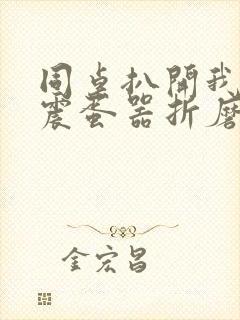 同桌扒開我
震蛋器折磨
金宏昌